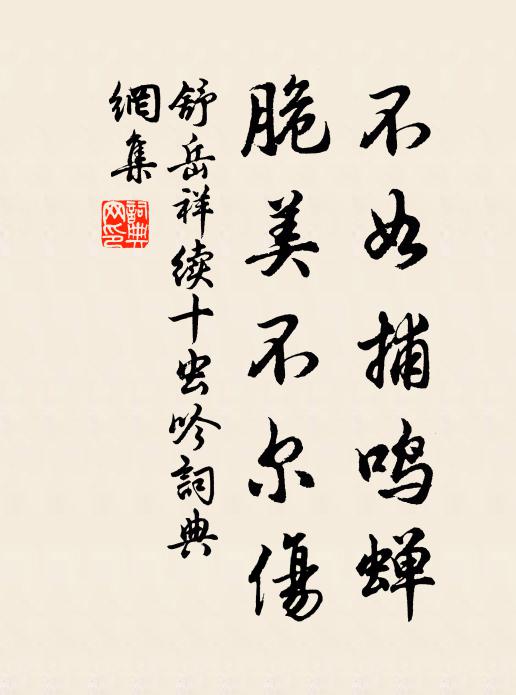 不如捕鸣蝉
脆美不尔傷
舒岳祥续十虫吟詞典
網集
詞典網印